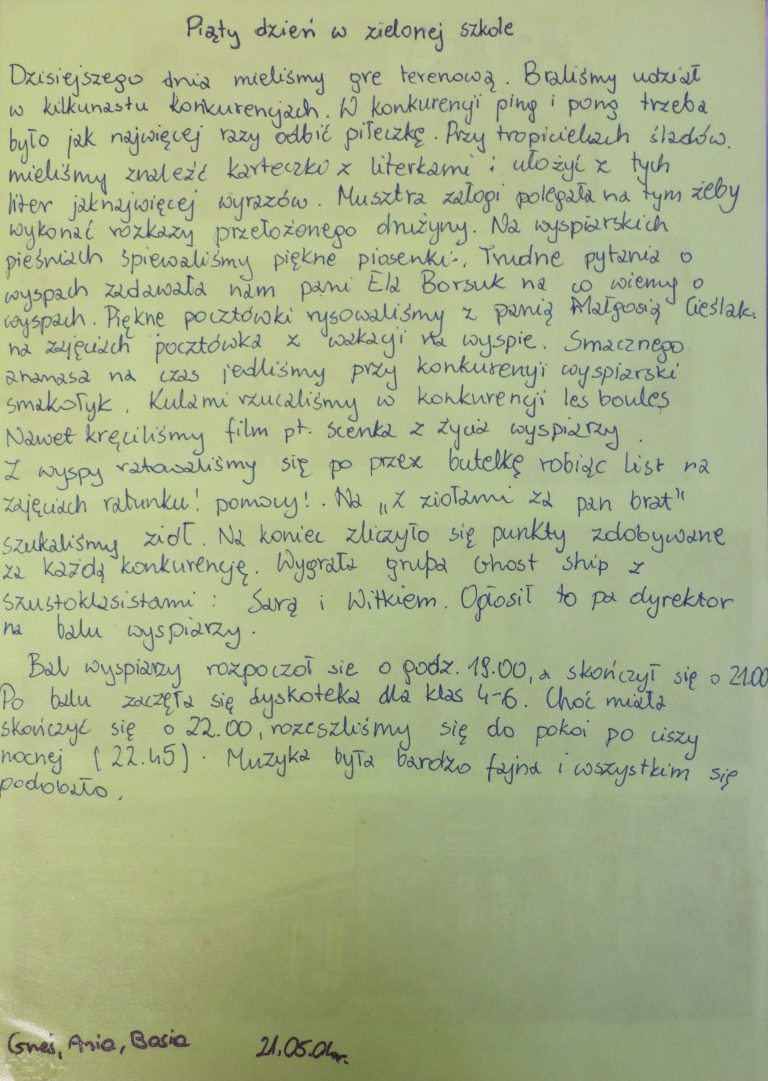 Piąty dzień w zielonej szkole
Dzisiejszego dnia mieliśmy gre terenową. Braliśmy udział
w kilkunastu konkurencjach. W konkurencji ping i pong trzeba
było jak najwięcej razy odbić piłeczkę. Przy tropicielach śladów.
mieliśmy znaleźć karteczki z literkami i ułożyć z tych
liter jaknajwięcej wyrazów. Musztra załogi polegała na tym żeby
wykonać rozkazy przełożonego drużyny. Na wyspiarskich
pieśniach śpiewaliśmy piękne piosenki. Trudne pytania o
wyspach zadawała nam pani Ela Borsuk na co wiemy o
wyspach. Piękne pocztówki rysowaliśmy z panią Małgosią Cieślak.
na zajęciach pocztówka z wakacji na wyspie. Smacznego
ananasa na czas jedliśmy przy konkurencji wyspiarski
smakołyk. Kulami rzucaliśmy w konkurencji les boules
Nawet kręciliśmy film pt. scenka z życia wyspiarzy.
Z wyspy ratowaliśmy się po przez butelkę robiąc list na
zajęciach ratunku! pomocy!. Na "z ziołami za pan brat"
szukaliśmy ziół. Na koniec zliczyło się punkty zdobywane
za każdą konkurencję. Wygrała grupa Ghost ship z
szustoklasistami: Sarą i Witkiem. Ogłosił to pa dyrektor
na balu wyspiarzy.
Bal wyspiarzy rozpoczoł sie o godz. 19.00, a skończył się o 21.00
Po balu zaczęła się dyskoteka dla klas 4-6. Choć miała
skończyć się o 22.00, rozeszliśmy się do pokoi po ciszy
nocnej (22.45). Muzyka była bardzo fajna i wszystkim się
podobało.
Ania, Basia 21.05.04r.